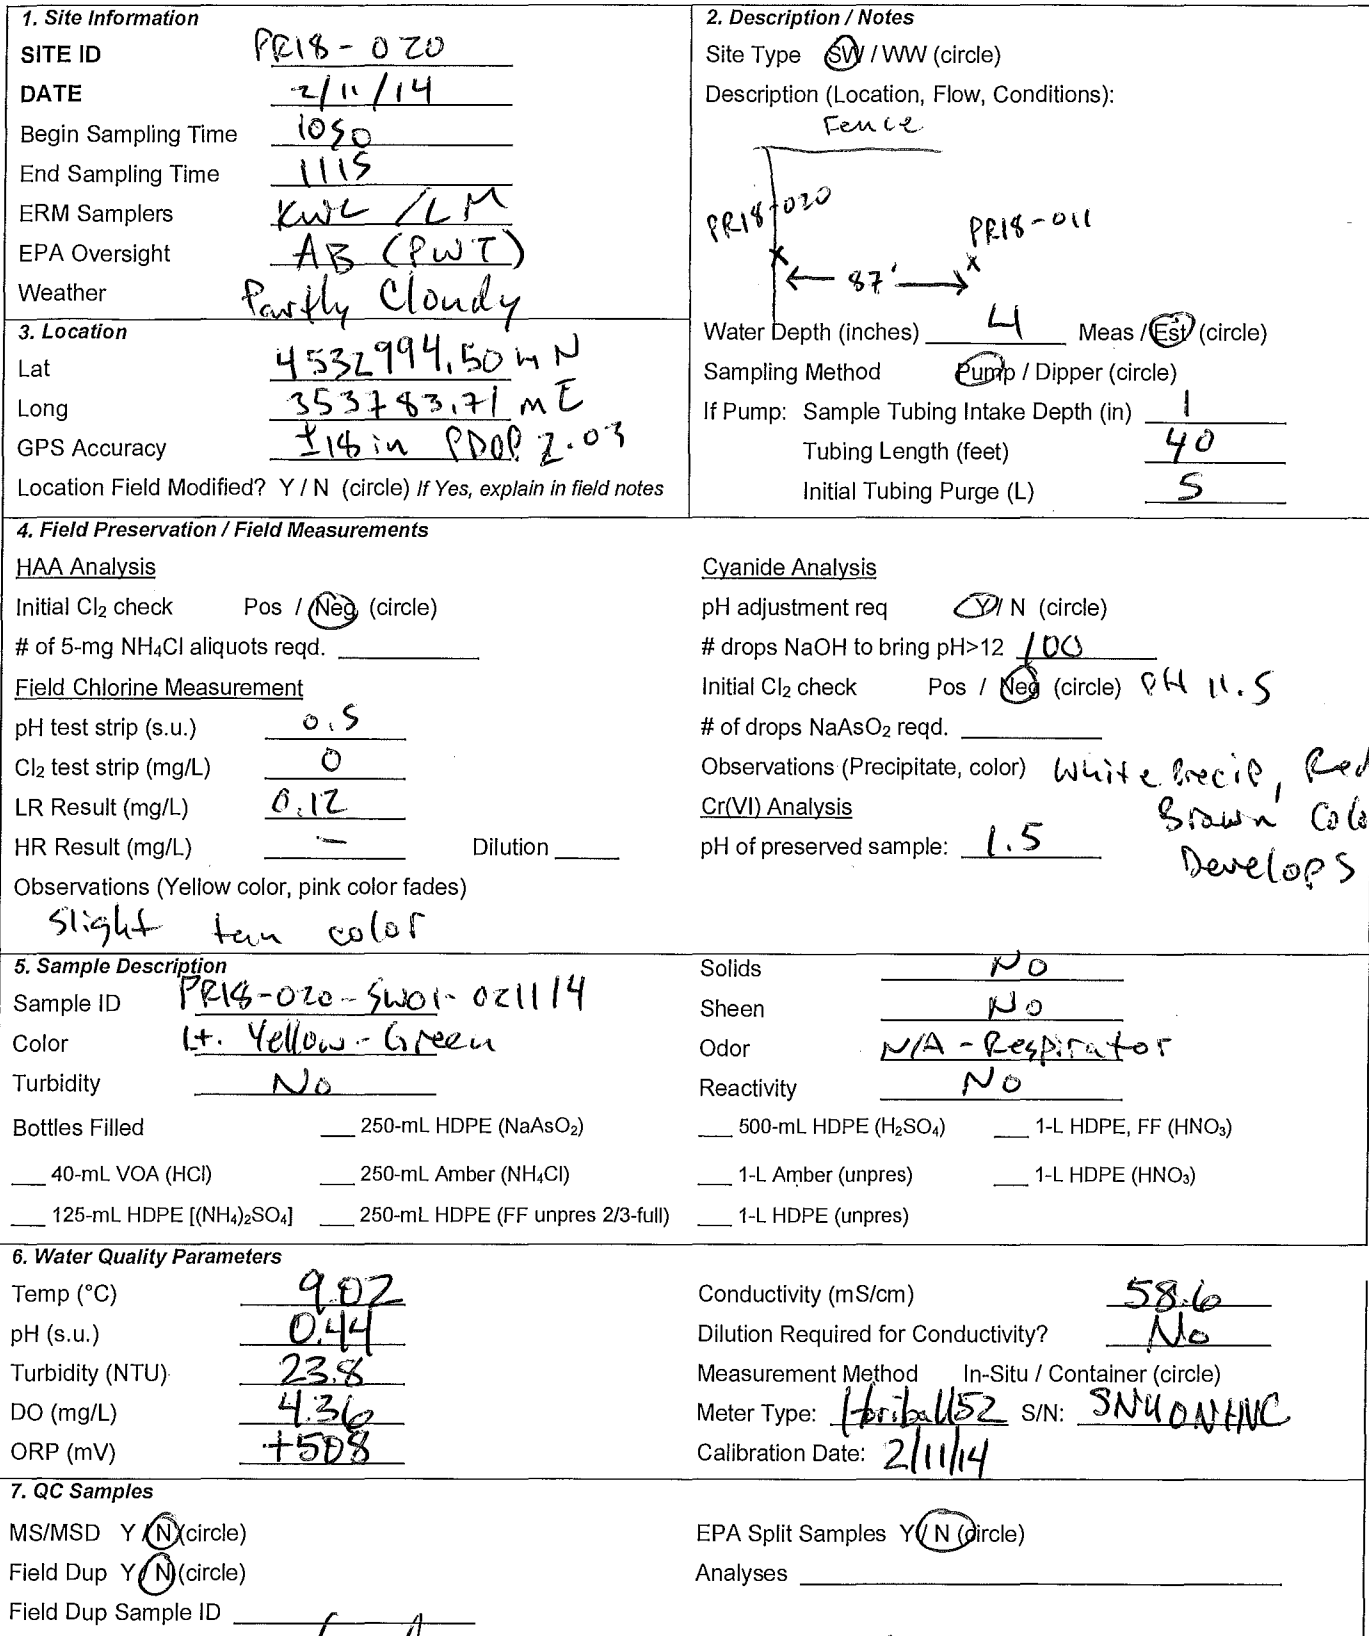 1. Site Information
SITE ID PR18-020
DATE 2/11/14
Begin Sampling Time 1050
End Sampling Time 1115
ERM Samplers KWL /LM
EPA Oversight AB (PWT)
Weather Partly Cloudy
2. Description / Notes
Site Type SW / WW (circle)
Description (Location, Flow, Conditions):
Fence
PR18-020
PR18-011
x ← 87' → x
Water Depth (inches) 4 Meas / Est (circle)
Sampling Method Pump / Dipper (circle)
If Pump: Sample Tubing Intake Depth (in) 1
Tubing Length (feet) 40
Initial Tubing Purge (L) 5
3. Location
Lat 4532994.50 m N
Long 353783.71 m E
GPS Accuracy ±18 in PDOP 2.03
Location Field Modified? Y / N (circle) If Yes, explain in field notes
4. Field Preservation / Field Measurements
HAA Analysis
Initial Cl₂ check Pos / Neg (circle)
# of 5-mg NH₄Cl aliquots reqd.
Field Chlorine Measurement
pH test strip (s.u.) 0.5
Cl₂ test strip (mg/L) 0
LR Result (mg/L) 0.12
HR Result (mg/L) — Dilution
Observations (Yellow color, pink color fades)
Slight tan color
Cyanide Analysis
pH adjustment req Y / N (circle)
# drops NaOH to bring pH>12 100
Initial Cl₂ check Pos / Neg (circle) pH 11.5
# of drops NaAsO₂ reqd.
Observations (Precipitate, color) White Precip, Red
Brown Colo
Develops
Cr(VI) Analysis
pH of preserved sample: 1.5
5. Sample Description
Sample ID PR18-020-SW01-021114
Color Lt. Yellow-Green
Turbidity No
Solids No
Sheen No
Odor N/A - Respirator
Reactivity No
Bottles Filled ___ 250-mL HDPE (NaAsO₂) ___ 500-mL HDPE (H₂SO₄) ___ 1-L HDPE, FF (HNO₃)
___ 40-mL VOA (HCl) ___ 250-mL Amber (NH₄Cl) ___ 1-L Amber (unpres) ___ 1-L HDPE (HNO₃)
___ 125-mL HDPE [(NH₄)₂SO₄] ___ 250-mL HDPE (FF unpres 2/3-full) ___ 1-L HDPE (unpres)
6. Water Quality Parameters
Temp (°C) 9.02
pH (s.u.) 0.44
Turbidity (NTU) 23.8
DO (mg/L) 4.36
ORP (mV) +508
Conductivity (mS/cm) 58.6
Dilution Required for Conductivity? No
Measurement Method In-Situ / Container (circle)
Meter Type: Horiba U52 S/N: SNU0NHNC
Calibration Date: 2/11/14
7. QC Samples
MS/MSD Y / N (circle)
Field Dup Y / N (circle)
Field Dup Sample ID
EPA Split Samples Y / N (circle)
Analyses